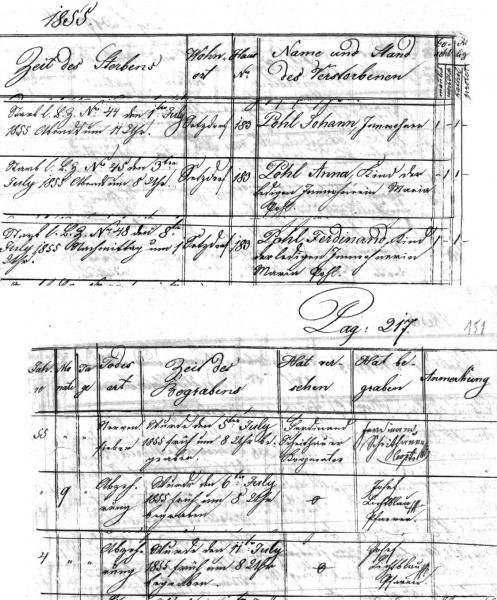 1855
Zeit des Sterbens
Wohn-
ort
Haus
No
Name und Stand
des Verstorbenen
Starb l. L. Z. No 44 den 1ten July
1855 Abends um 11 Uhr.
Setzdorf
183
Pohl Johann, Inwohner
Starb l. L. Z. No 45 den 3ten
July, 1855 Abends um 8 Uhr.
Setzdorf
183
Pohl Anna, Kind der
ledigen Inwohnerin Maria
Pohl.
Starb l. L. Z. No 48 den 8ten
July, 1855 Nachmittag um 1
Uhr.
Setzdorf
183
Pohl Ferdinand, Kind
der ledigen Inwohnerin
Maria Pohl.
Pag: 217.
151
Jah-
re
Mo-
nate
Ta-
ge
Todes
art
Zeit des
Begrabens
Hat ver-
sehen
Hat be-
graben
Anmerkung
55
"
"
Nerven-
fieber
Wurde den 5ten July
1855 früh um 8 Uhr be-
graben.
Ferdinand
Cooperator
Ferdinand
"
9
"
Abzeh-
rung
Wurde den 6ten July
1855 früh um 8 Uhr
begraben
Josef
Lichtblau
Pfarrer.
4
"
Abzeh-
rung
Wurde den 11ten July
1855 früh um 8 Uhr
begraben
Josef
Lichtblau
Pfarrer